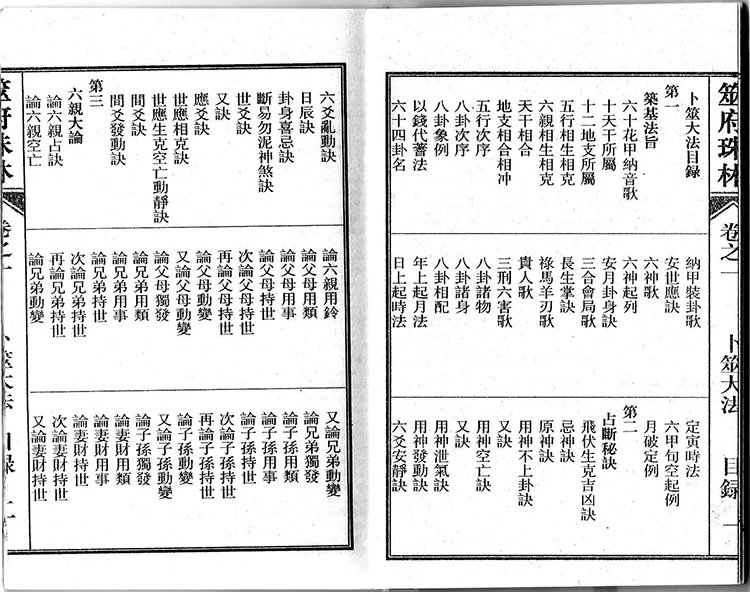 筮府珠林 卷之一 卜筮大法 目錄 一
卜筮大法目錄
第一
築基法旨
六十花甲納音歌
十天干所屬
十二地支所屬
五行相生相克
六親相生相克
天干相合
地支相合相冲
五行次序
八卦次序
八卦象例
以錢代蓍法
六十四卦名
納甲裝卦歌
安世應訣
六神歌
六神起列
安月卦身訣
三合會局歌
長生掌訣
祿馬羊刃歌
貴人歌
三刑六害歌
八卦諸物
八卦諸身
八卦相配
年上起月法
日上起時法
定寅時法
六甲旬空起例
月破定例
第二
占斷秘訣
飛伏生克吉凶訣
忌神訣
原神訣
用神不上卦訣
又訣
用神空亡訣
又訣
用神泄氣訣
用神發動訣
六爻安靜訣
六爻亂動訣
日辰訣
卦身喜忌訣
斷易勿泥神煞訣
世爻訣
又訣
應爻訣
世應相克訣
世應生克空亡動靜訣
間爻訣
間爻發動訣
第三
六親大論
論六親占訣
論六親空亡
論六親用鈐
論父母用類
論父母用事
論父母持世
次論父母持世
再論父母持世
論父母動變
又論父母動變
論父母獨發
論兄弟用類
論兄弟用事
論兄弟持世
次論兄弟持世
再論兄弟持世
論兄弟動變
又論兄弟動變
論兄弟獨發
論子孫用類
論子孫用事
論子孫持世
次論子孫持世
再論子孫持世
論子孫動變
又論子孫動變
論子孫獨發
論妻財用類
論妻財用事
論妻財持世
次論妻財持世
又論妻財持世
筮府珠林 卷之一 卜筮大法 目錄 二